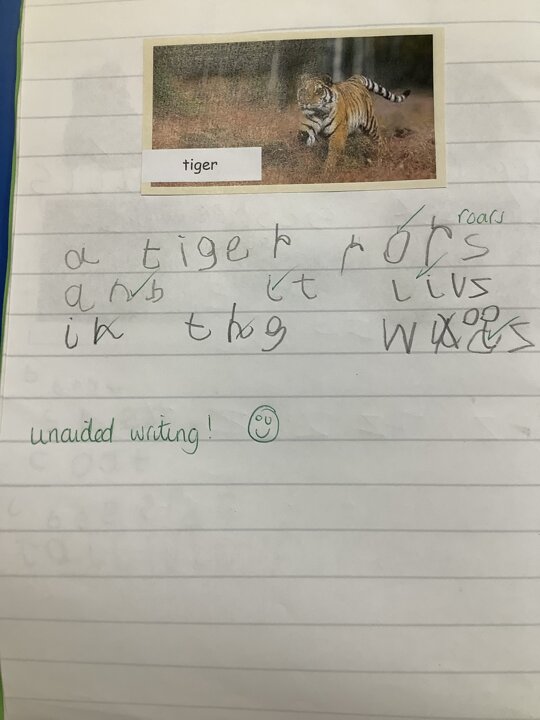 tiger
roars
a tiger rors
anb it livs
in the woods
unaided writing!